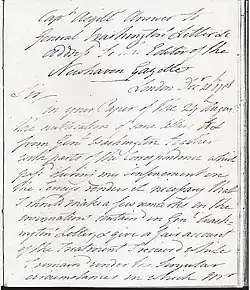 Capt Asgill Answer to
General Washington's Letter &c
Address to the Editor of the
Newhaven Gazette
London Decr 20 1786
Sir
In your Paper of the 24th August
the publication of some letters to &
from Genl Washington together
with parts of the Correspondence which
pass'd during my confinement in
the Jerseys renders it necessary that
I should make a few remarks on the
insinuations contain'd in Genl Wash-
ington's Letter, & give a fair account
of the treatment I received while
I remain'd under the singular
circumstances in which